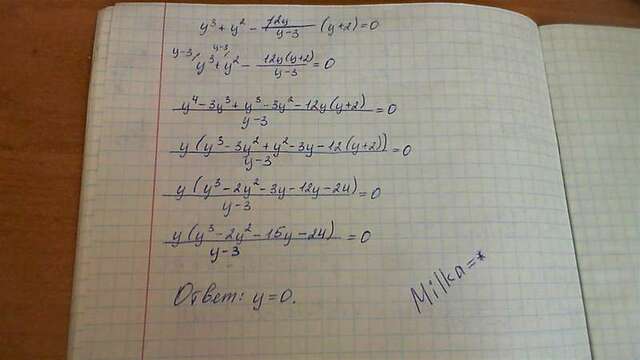 y³ + y² - 12y/y-3 (y+2) = 0
y-3/ y-3/
y³ + y² - 12y(y+2)/y-3 = 0
y⁴ - 3y³ + y³ - 3y² - 12y(y+2)/y-3 = 0
y(y³ - 3y² + y² - 3y - 12(y+2))/y-3 = 0
y(y³ - 2y² - 3y - 12y - 24)/y-3 = 0
y(y³ - 2y² - 15y - 24)/y-3 = 0
Ответ: y = 0.
Milka=*